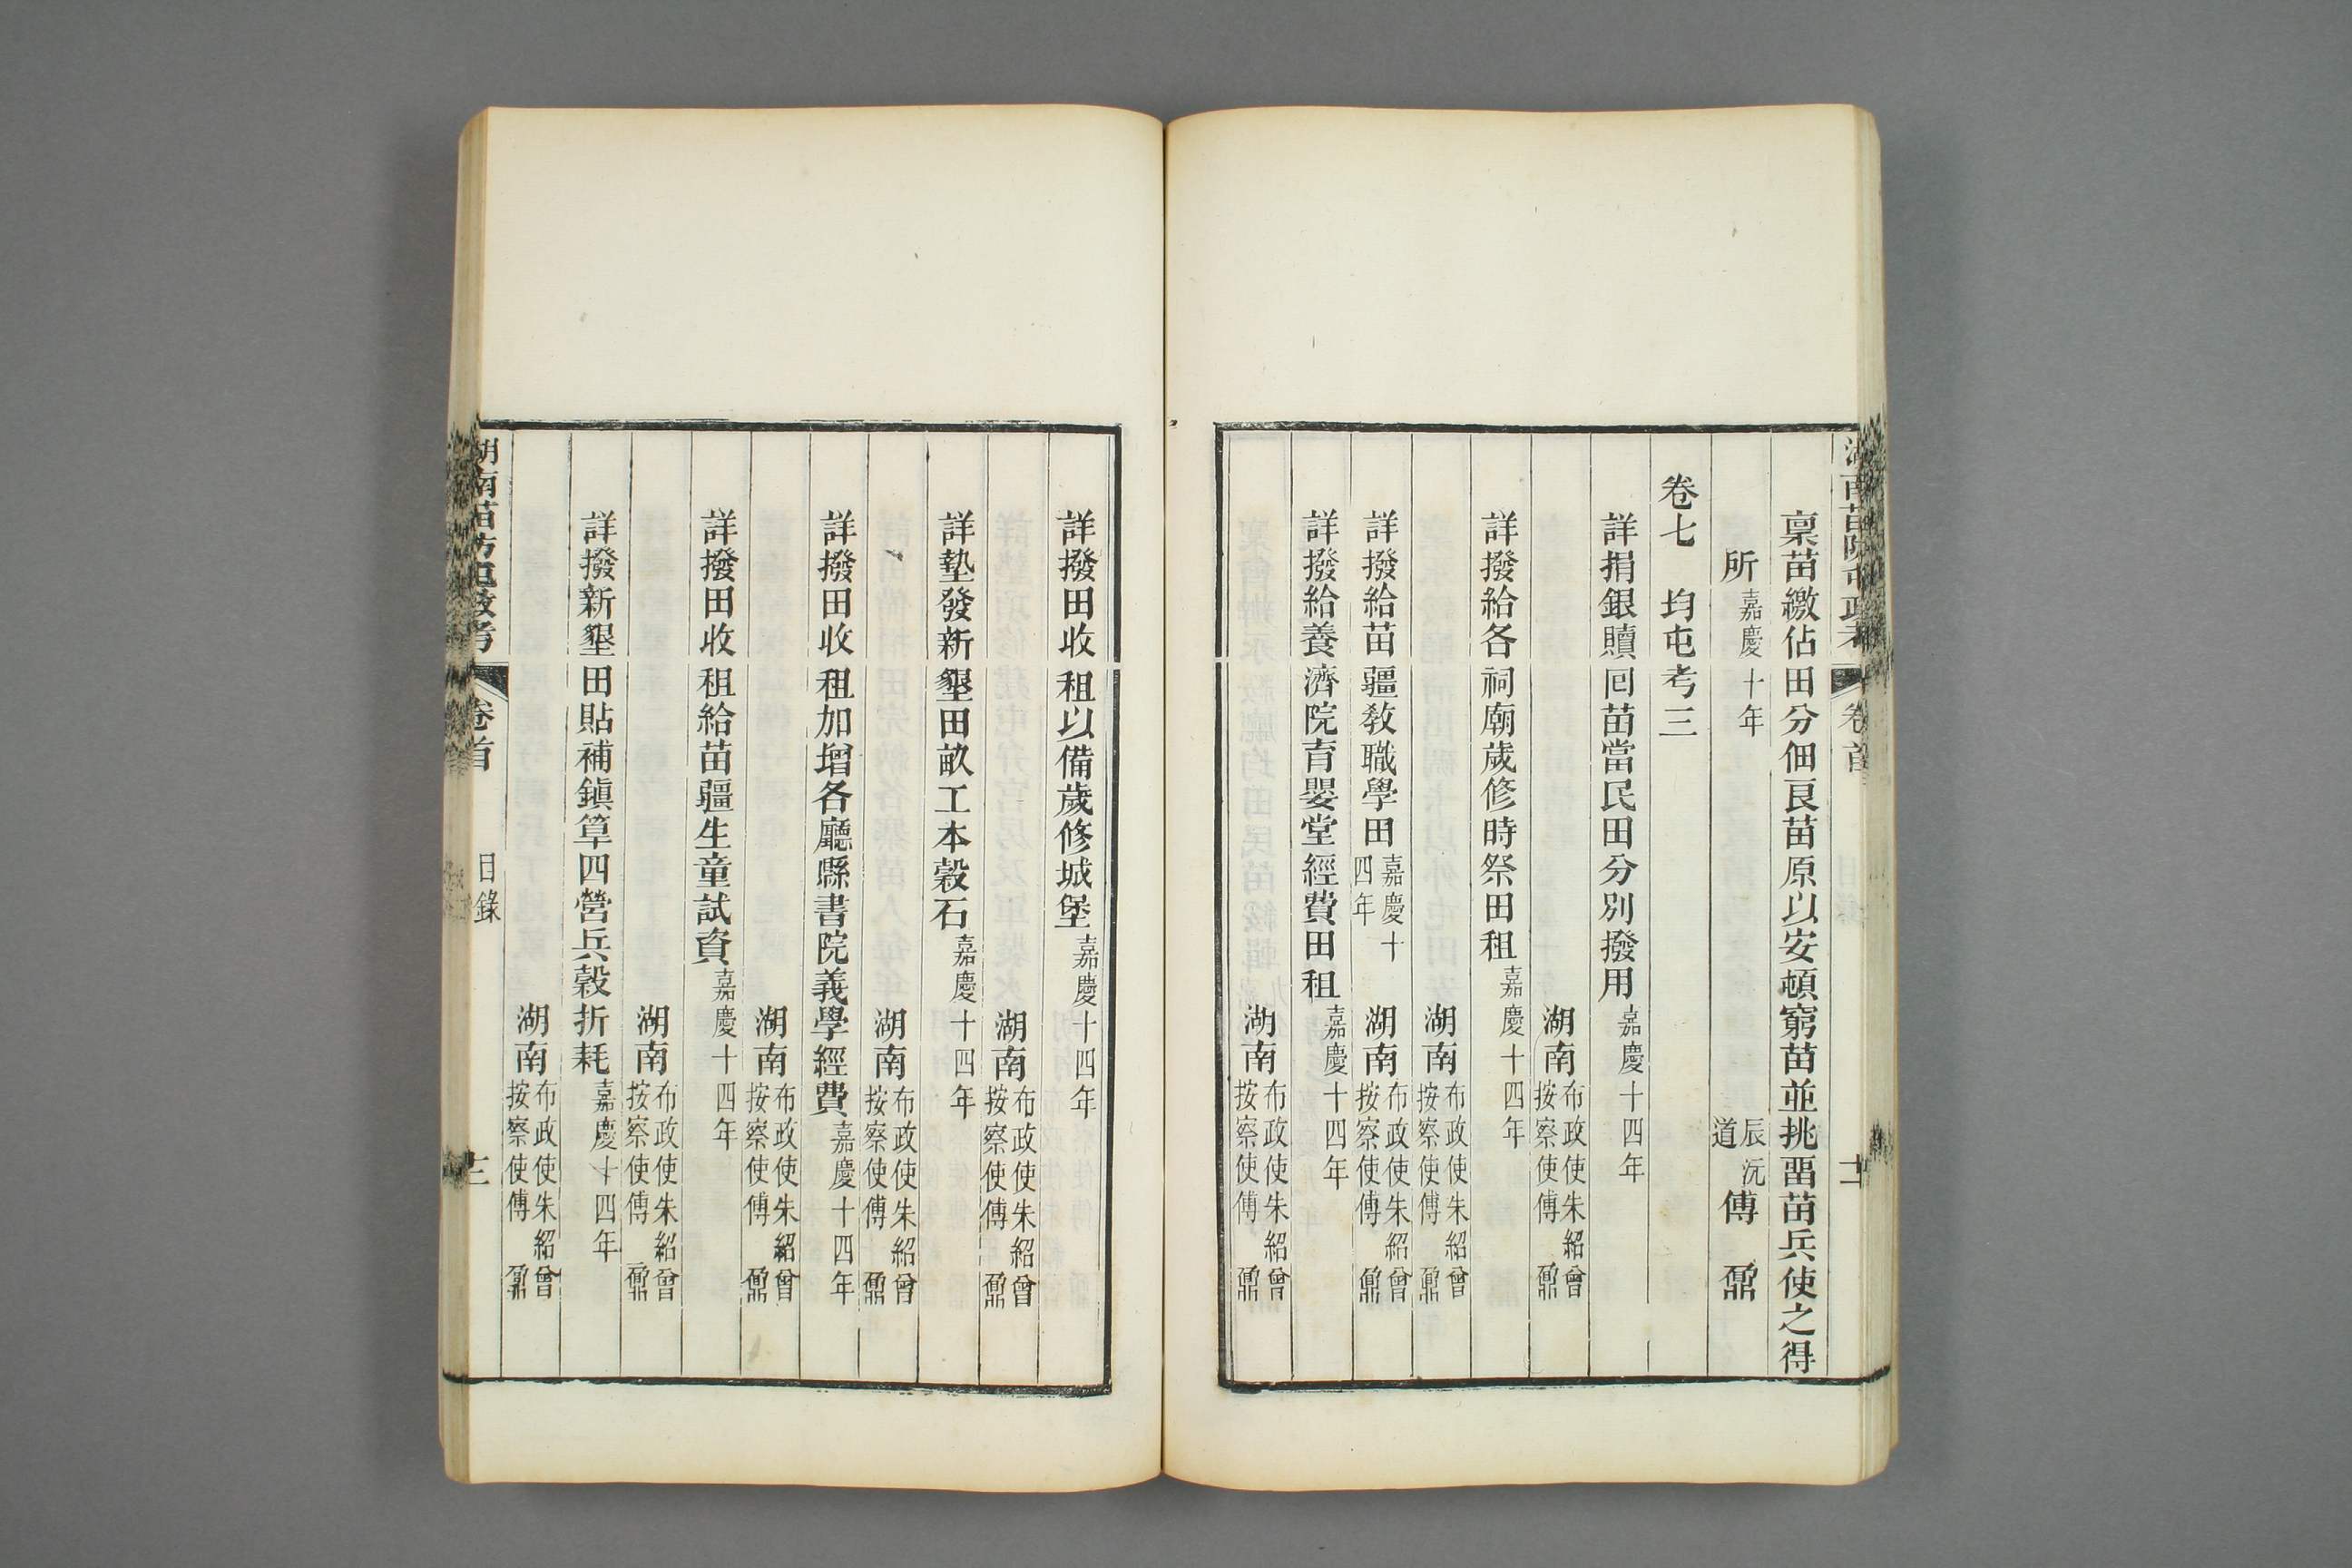 湖南苗防屯政考 卷首 目錄 十二
稟苗繳佔田分佃良苗原以安頓窮苗並挑畱苗兵使之得
所 嘉慶十年 辰沅道 傅鼐
卷七 均屯考三
詳捐銀贖回苗當民田分別撥用 嘉慶十四年
湖南 布政使朱紹曾 按察使傅鼐
詳撥給各祠廟歲修時祭田租 嘉慶十四年
湖南 布政使朱紹曾 按察使傅鼐
詳撥給苗疆敎職學田 嘉慶十四年 湖南 布政使朱紹曾 按察使傅鼐
詳撥給養濟院育嬰堂經費田租 嘉慶十四年
湖南 布政使朱紹曾 按察使傅鼐
詳撥田收租以備歲修城堡 嘉慶十四年
湖南 布政使朱紹曾 按察使傅鼐
詳墊發新墾田畝工本穀石 嘉慶十四年
湖南 布政使朱紹曾 按察使傅鼐
詳撥田收租加增各廳縣書院義學經費 嘉慶十四年
湖南 布政使朱紹曾 按察使傅鼐
詳撥田收租給苗疆生童試資 嘉慶十四年
湖南 布政使朱紹曾 按察使傅鼐
詳撥新墾田貼補鎭筸四營兵穀折耗 嘉慶十四年
湖南 布政使朱紹曾 按察使傅鼐
湖南苗防屯政考 卷首 目錄